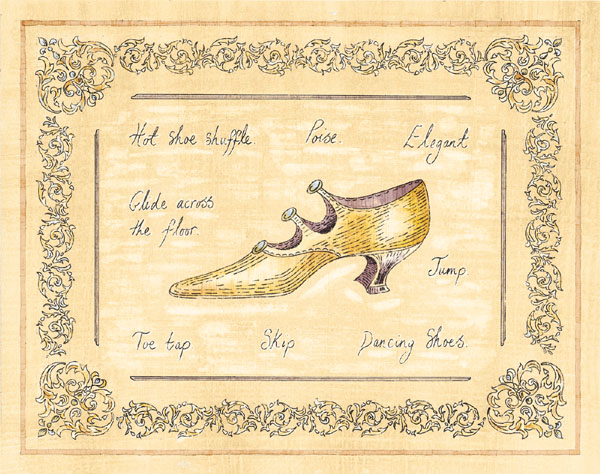 Hot shoe shuffle. Poise. Elegant
Glide across
the floor.
Jump
Toe tap Skip Dancing Shoes.